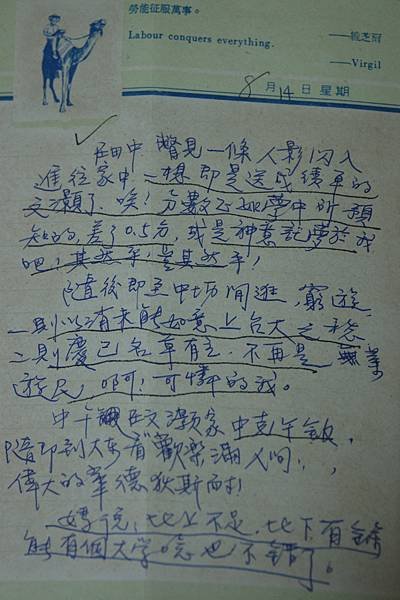 勞能征服萬事。
Labour conquers everything.
——Virgil
8月14日星期
在田中瞥見一條人影闪入
進往家中一想即是送成績單的
文灝了．唉！分數正如夢中所預
知的，差了0.5分，或是神意託夢於我
吧！其然乎！豈其然乎！
隨後即至中坊間逛，窮遊，
一則以消未能如意上台大之
二則慶已名草有主．不再是無業
遊民．啊！可憐的我。
中午在文灝家中吃午飯，
隨即到大东看"歡樂滿人間"，
偉大的華德狄斯而
媽說：比上不足．比下有餘
能有個大学唸也不錯了。